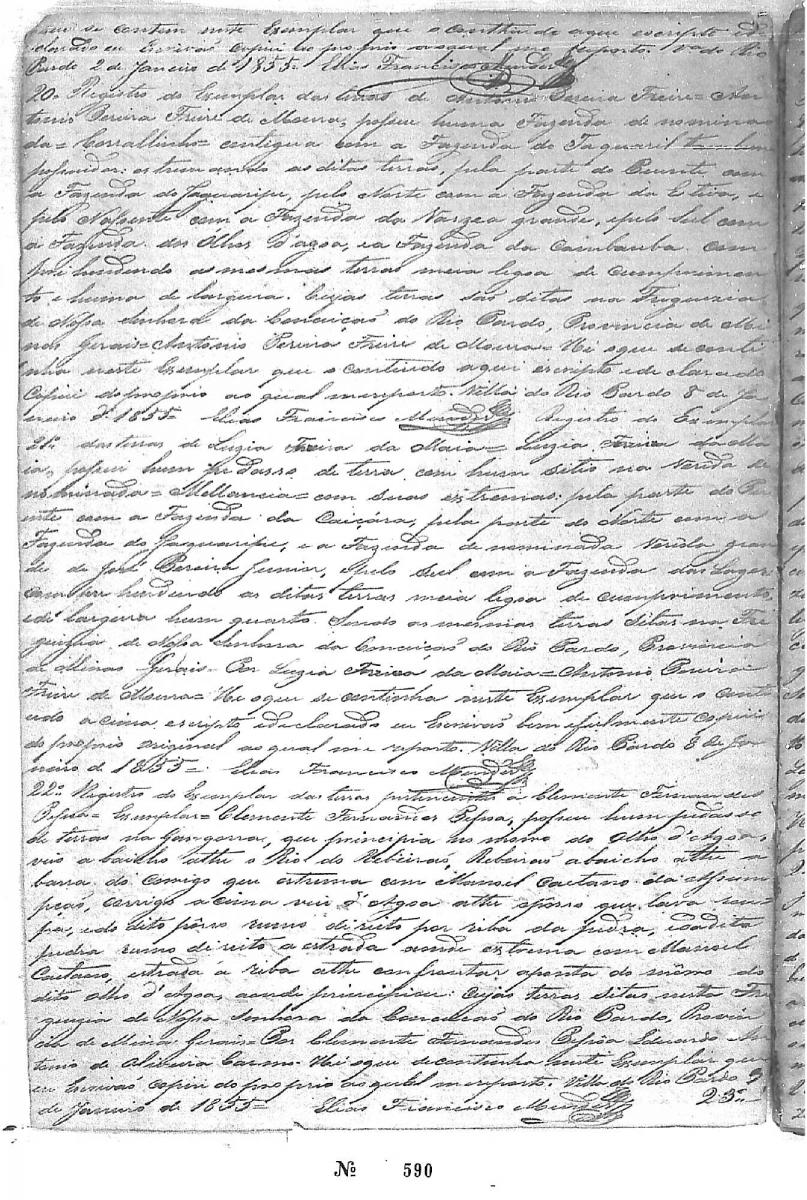 que se contem neste Exemplar que o conthiudo aque escripto ede
clarado eu Escrivaõ Copiei do proprio aoqual me reporto. Vª do Rio
Pardo 2 de Janeiro de 1855= Elias Francisco Mendes
20º Registro do Exemplar das terras de Antonio Pereira Freire= An-
tonio Pereira Freire de Moura, possue huma Fazenda de nomina
da= Corrallinho= contigua com a Fazenda do Taquaril
possuidas: estremando as ditas terras, pela parte do Poente, com
a Fazenda do Jaguaripe, pelo Norte com a Fazenda da Estiva, e
pelo Nascente com a Fazenda da Vargea grande, epelo Sul com
a Fazenda dos Olhos D'agoa, ea Fazenda da Cambauba. Com
prehendendo as mesmas terras meia legoa de Cumprimen
to e huma de largura. Cujas terras saõ sitas na Freguezia
de Nossa Senhora da Conceiçaõ do Rio Pardo, Provincia de Mi
nas Gerais= Antonio Pereira Freire de Moura= He oque se conti
nha neste Exemplar que o contiudo aqui escripto ede clarado
Copiei do proprio ao qual me reporto. Villa do Rio Pardo 8 de Ja
neiro d'1855= Elias Francisco Mendes Registro do Exemplar
21º das terras de Luzia Freira da Maia= Luzia Freira da Ma
ia, possue hum pedasso de terra com hum sitio na Vereda de
nominada= Mellancia= com suas extremas: pela parte do Poe
nte com a Fazenda da Caiçára, pela parte do Norte com a
Fazenda do Jaguaripe, e a Fazenda de nominada Verêda gran
de de José Pereira Junior, epelo Sul com a Fazenda da Lagea
comprehendendo as ditas terras meia legoa de cumprimento,
ede largura hum quarto. Sendo as mesmas terras sitas na Fre
guizia de Nossa Senhora da Conceiçaõ do Rio Pardo, Provincia
de Minas Gerais= Por Luzia Freira da Maia= Antonio Pereira
Freire de Moura= He oque se continha neste Exemplar que o conti
udo acima escripto edeclarado eu Escrivaõ bem efielmente Copiei
do proprio original ao qual me reporto. Villa do Rio Pardo 8 de Ja
neiro de 1855= Elias Francisco Mendes
22º Registro do Exemplar das terras pertencentes a Clemente Fernandes
Pessoa= Exemplar= Clemente Fernandes Pessoa, possue hum pedasso
de terras na Gangorra, que principia no mesmo do Olho d'Agoa,
veio abaicho athe o Rio do Ribeiraõ, Ribeiraõ abaicho athe a
barra do Corrigo que estrema com Manoel Caetano da Assum
pçaõ, corrigo acima veio d'Agoa athe opôsso que lava rou-
pa, edo dito pôsso rumo direito por riba da pedra, eda dita
pedra rumo direito a estrada aonde extrema com Manoel
Caetano, estrada a riba athe enfrentar aponta do mêsmo do
dito olho d'Agoa, aonde principiou: Cujas terras sitas nesta Fre
guizia de Nossa Senhora da Conceicaõ do Rio Pardo, Provin
cia de Minas Gerais= Por Clemente Fernandes Pessoa Eduardo An
tonio de Oliveira Carmo. He oque secontinha neste Exemplar que
eu Escrivaõ copiei do proprio aoqual me reporto. Villa do Rio Pardo 9
de Janeiro de 1855= Elias Francisco Mendes 23º
Nº 590